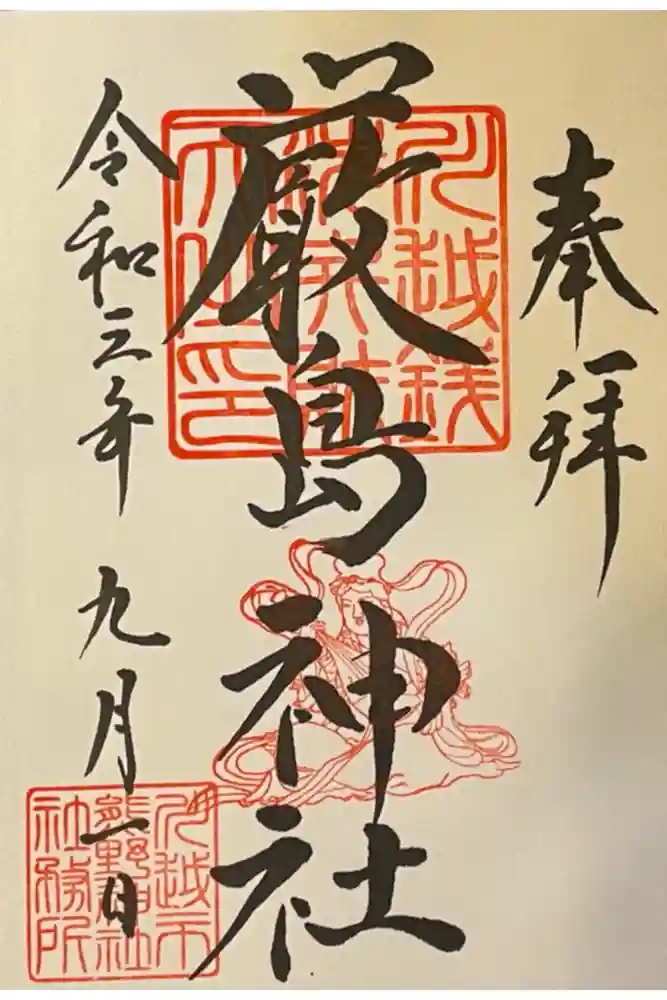 奉拝
厳島神社
令和三年 九月一日
川越銭
洗弁財
天之印
川越市
熊野神社
社務所